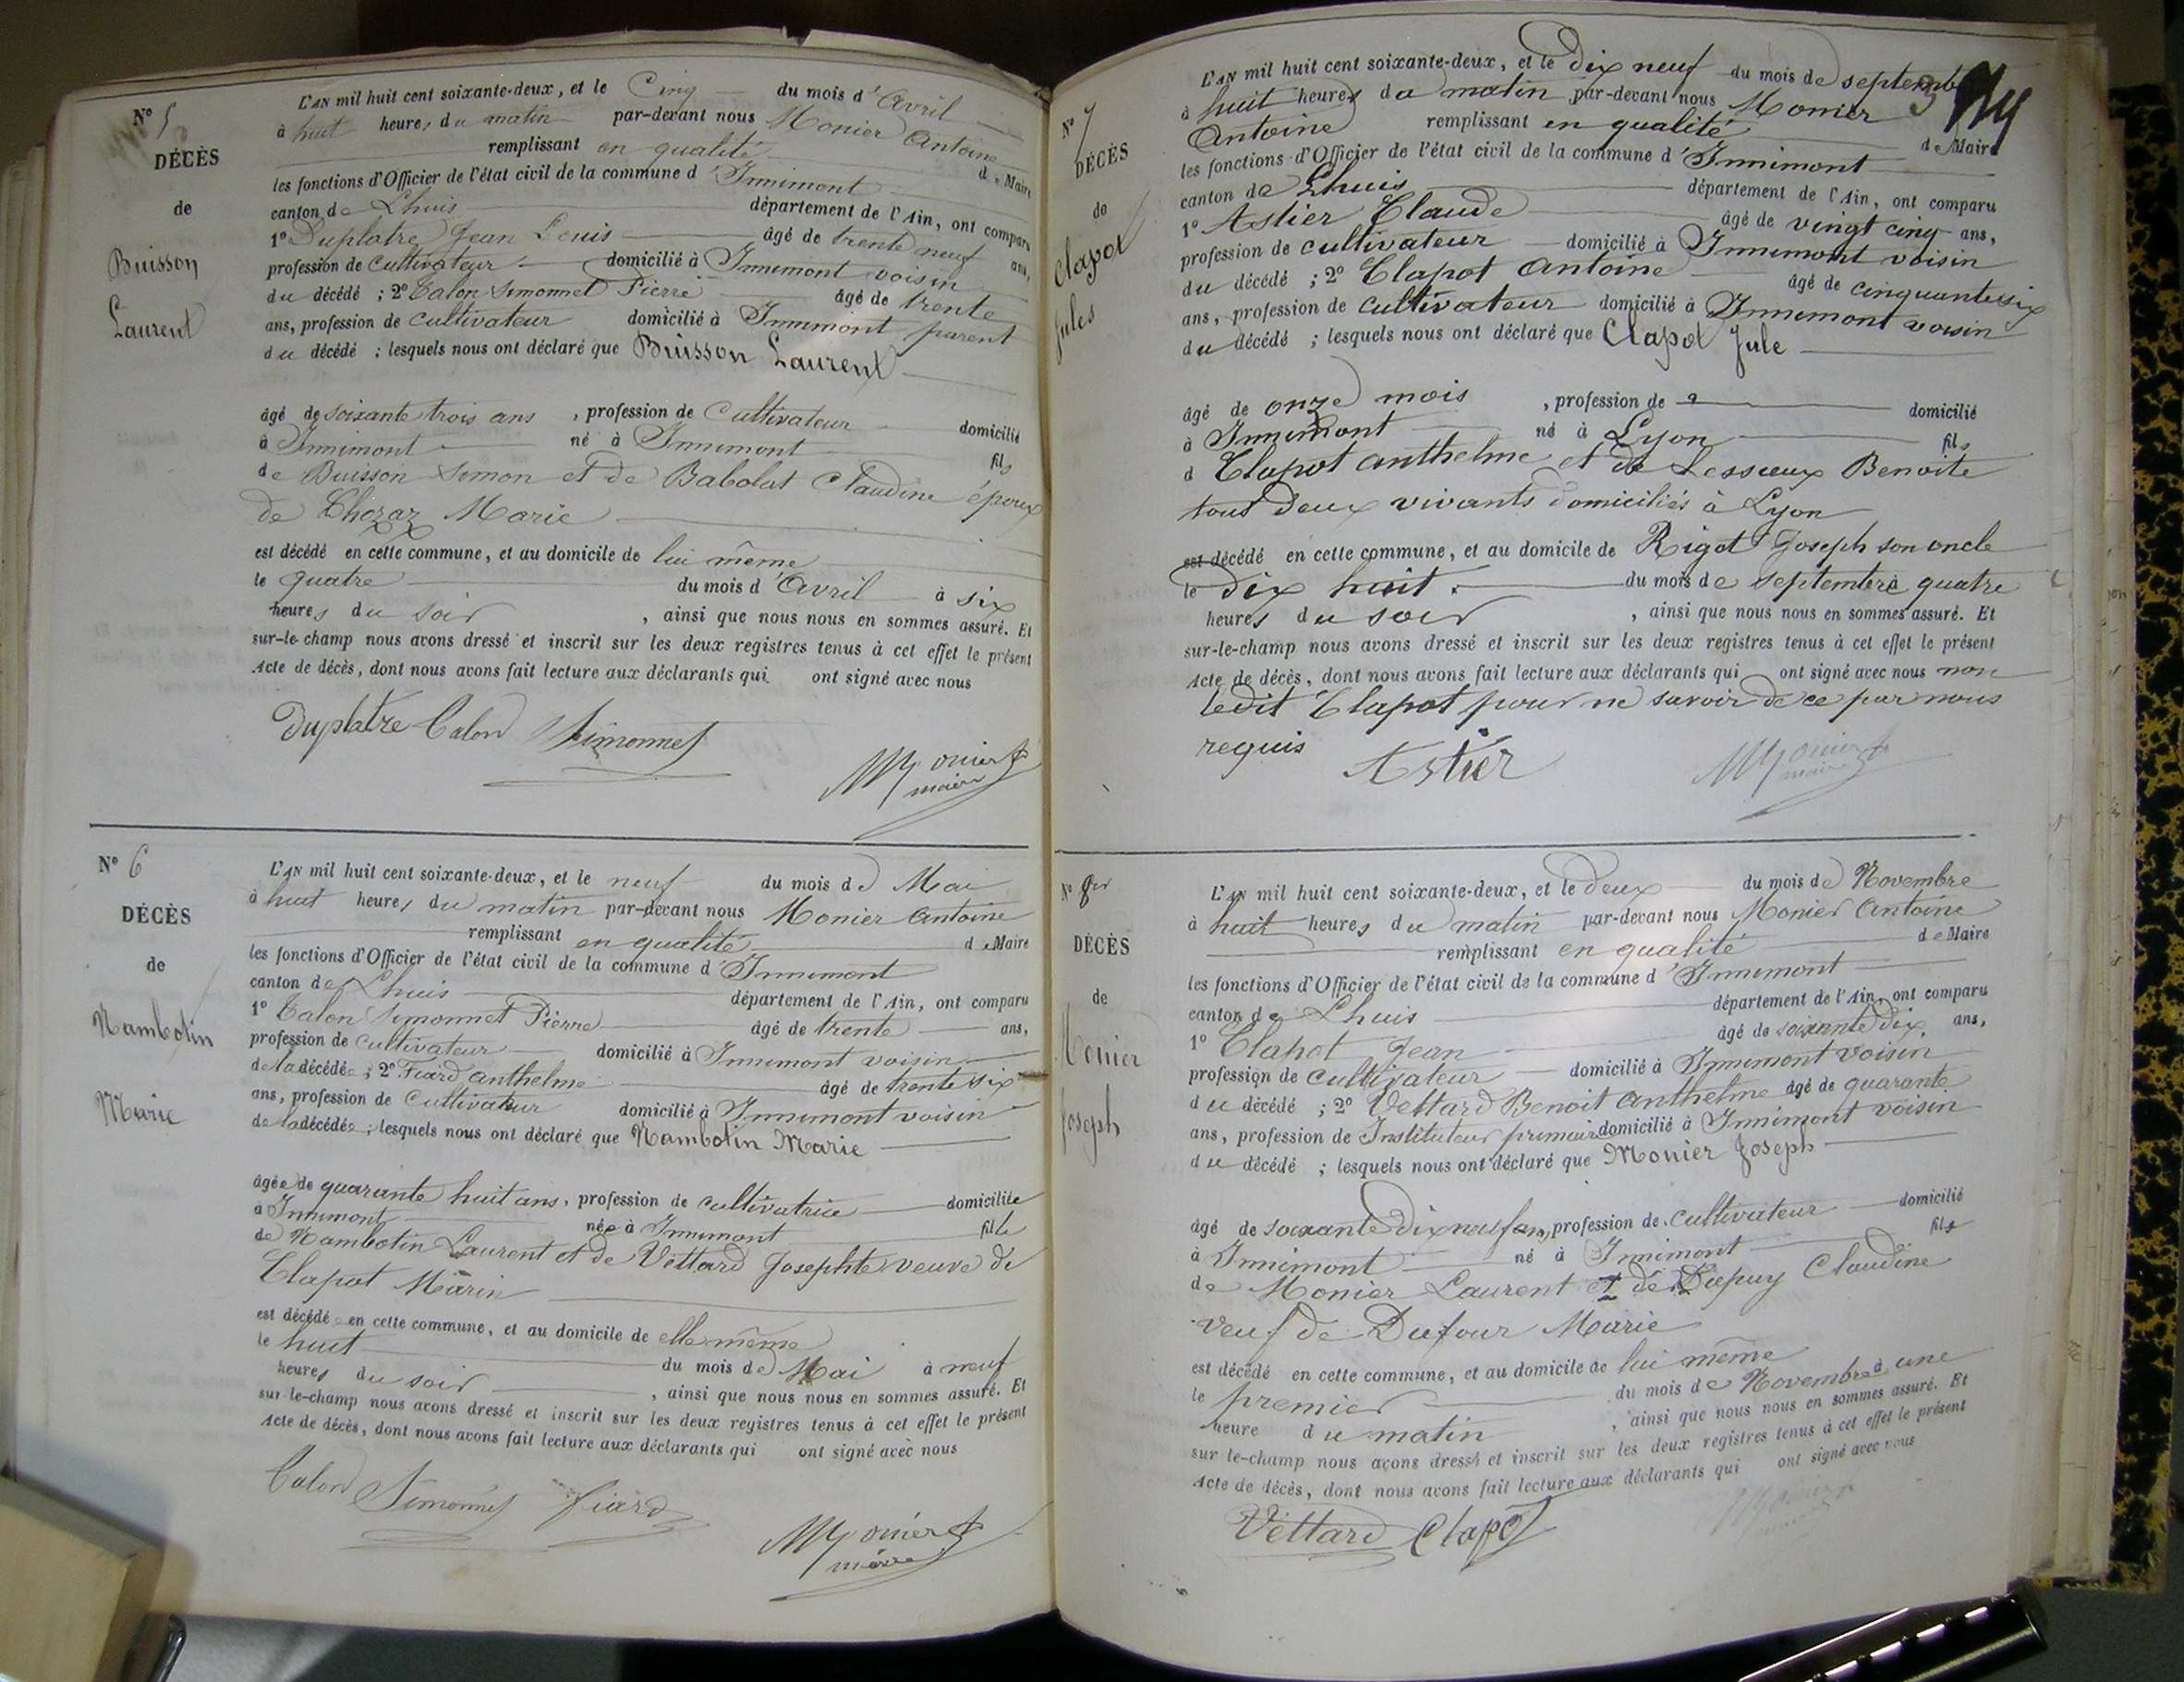 N° 5
DÉCÈS
de
Buisson
Laurent
L'AN mil huit cent soixante-deux, et le Cinq du mois d'Avril
à huit heures du matin par-devant nous Monier Antoine
remplissant en qualité de Maire
les fonctions d'Officier de l'état civil de la commune d'Innimont
canton de Lhuis département de l'Ain, ont comparu
1° Duplatre Jean Louis âgé de trente neuf ans,
profession de cultivateur domicilié à Innimont voisin
du décédé ; 2° Calon Simonnet Pierre âgé de trente
ans, profession de cultivateur domicilié à Innimont parent
du décédé ; lesquels nous ont déclaré que Buisson Laurent
âgé de soixante trois ans , profession de Cultivateur domicilié
à Innimont né à Innimont fils
de Buisson Simon et de Babolat Claudine époux
de Thozaz Marie
est décédé en cette commune, et au domicile de lui même
le quatre du mois d'Avril à six
heures du soir , ainsi que nous nous en sommes assuré. Et
sur-le-champ nous avons dressé et inscrit sur les deux registres tenus à cet effet le présent
Acte de décès, dont nous avons fait lecture aux déclarants qui ont signé avec nous
Duplatre Calon Simonnet
Monier A
maire
N° 6
DÉCÈS
de
Nambotin
Marie
L'AN mil huit cent soixante-deux, et le neuf du mois de Mai
à huit heures du matin par-devant nous Monier Antoine
remplissant en qualité de Maire
les fonctions d'Officier de l'état civil de la commune d'Innimont
canton de Lhuis département de l'Ain, ont comparu
1° Calon Simonnet Pierre âgé de trente ans,
profession de cultivateur domicilié à Innimont voisin
de la décédée ; 2° Fiard Anthelme âgé de trente six
ans, profession de Cultivateur domicilié à Innimont voisin
de la décédée ; lesquels nous ont déclaré que Nambotin Marie
âgée de quarante huit ans, profession de cultivatrice domiciliée
à Innimont née à Innimont fille
de Nambotin Laurent et de Vettard Josephte veuve de
Clapot Marin
est décédée en cette commune, et au domicile de elle même
le huit du mois de Mai à neuf
heures du soir , ainsi que nous nous en sommes assuré. Et
sur-le-champ nous avons dressé et inscrit sur les deux registres tenus à cet effet le présent
Acte de décès, dont nous avons fait lecture aux déclarants qui ont signé avec nous
Calon Simonnet Fiard
Monier A
maire
N° 7
DÉCÈS
de
Clapot
Jules
L'AN mil huit cent soixante-deux, et le Dix neuf du mois de septembre
à huit heures du matin par-devant nous Monier
Antoine remplissant en qualité de Maire
les fonctions d'Officier de l'état civil de la commune d'Innimont
canton de Lhuis département de l'Ain, ont comparu
1° Astier Claude âgé de vingt cinq ans,
profession de cultivateur domicilié à Innimont voisin
du décédé ; 2° Clapot Antoine âgé de cinquante six
ans, profession de cultivateur domicilié à Innimont voisin
du décédé ; lesquels nous ont déclaré que Clapot Jule
âgé de onze mois , profession de domicilié
à Innimont né à Lyon fils
d Clapot Anthelme et de Lessieux Benoite
tous deux vivants domiciliés à Lyon
est décédé en cette commune, et au domicile de Rigot Joseph son oncle
le Dix huit du mois de septembre à quatre
heures du soir , ainsi que nous nous en sommes assuré. Et
sur-le-champ nous avons dressé et inscrit sur les deux registres tenus à cet effet le présent
Acte de décès, dont nous avons fait lecture aux déclarants qui ont signé avec nous non
ledit Clapot pour ne savoir de ce par nous
requis Astier
Monier A
maire
N° 8
DÉCÈS
de
Monier
Joseph
L'AN mil huit cent soixante-deux, et le Deux du mois de Novembre
à huit heures du matin par-devant nous Monier Antoine
remplissant en qualité de Maire
les fonctions d'Officier de l'état civil de la commune d'Innimont
canton de Lhuis département de l'Ain, ont comparu
1° Clapot Jean âgé de soixante dix ans,
profession de cultivateur domicilié à Innimont voisin
du décédé ; 2° Vettard Benoit Anthelme âgé de quarante
ans, profession de Instituteur primaire domicilié à Innimont voisin
du décédé ; lesquels nous ont déclaré que Monier Joseph
âgé de soixante Dix neuf ans, profession de cultivateur domicilié
à Innimont né à Innimont fils
de Monier Laurent et de Dupuy Claudine
veuf de Dufour Marie
est décédé en cette commune, et au domicile de lui même
le premier du mois de Novembre à une
heure du matin , ainsi que nous nous en sommes assuré. Et
sur le-champ nous avons dressé et inscrit sur les deux registres tenus à cet effet le présent
Acte de décès, dont nous avons fait lecture aux déclarants qui ont signé avec nous
Vettard Clapot